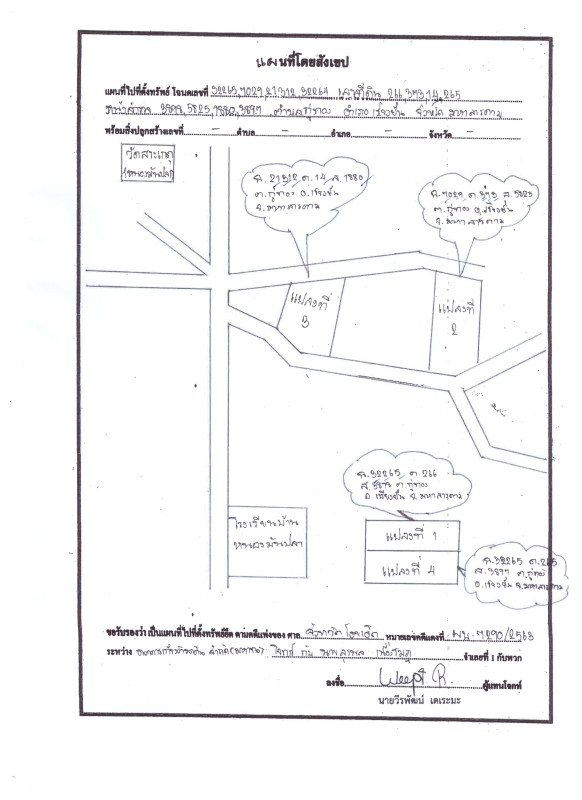 แผนที่โดยสังเขป
แผนที่ไปที่ตั้งทรัพย์ โฉนดเลขที่ 32265,7029,21312,32264 เลขที่ดิน 266,373,14,265
หน้าสำรวจ 3898,5825,1980,3897 ตำบลกู่ทอง อำเภอเชียงยืน จังหวัด มหาสารคาม
พร้อมสิ่งปลูกสร้างเลขที่ - ตำบล - อำเภอ - จังหวัด -
วัดสระเกตุ
ฉ. 21312 ด. 14 ส. 1980
ต.กู่ทอง อ.เชียงยืน
จ.มหาสารคาม
ฉ. 7029 ด. 373 ส. 5825
ต.กู่ทอง อ.เชียงยืน
จ.มหาสารคาม
แปลงที่
3
แปลงที่
2
ฉ.32265 ด. 266
ต.กู่ทอง
อ.เชียงยืน จ.มหาสารคาม
โรงเรียนบ้าน
หนองมันปลา
แปลงที่ 1
แปลงที่ 4
ฉ.32265 ด. 265
ส.3897 ต.กู่ทอง
อ.เชียงยืน จ.มหาสารคาม
ขอรับรองว่า เป็นแผนที่ไปที่ตั้งทรัพย์ยึด ตามคดีแพ่งของ ศาล จังหวัดร้อยเอ็ด หมายเลขคดีแดงที่ ผบ. 7290/2563
ระหว่าง จำกัด (มหาชน) โจทก์ กับ จำเลยที่ 1 กับพวก
ลงชื่อ ผู้แทนโจทก์
นายวีรพัฒน์ เดเระมะ